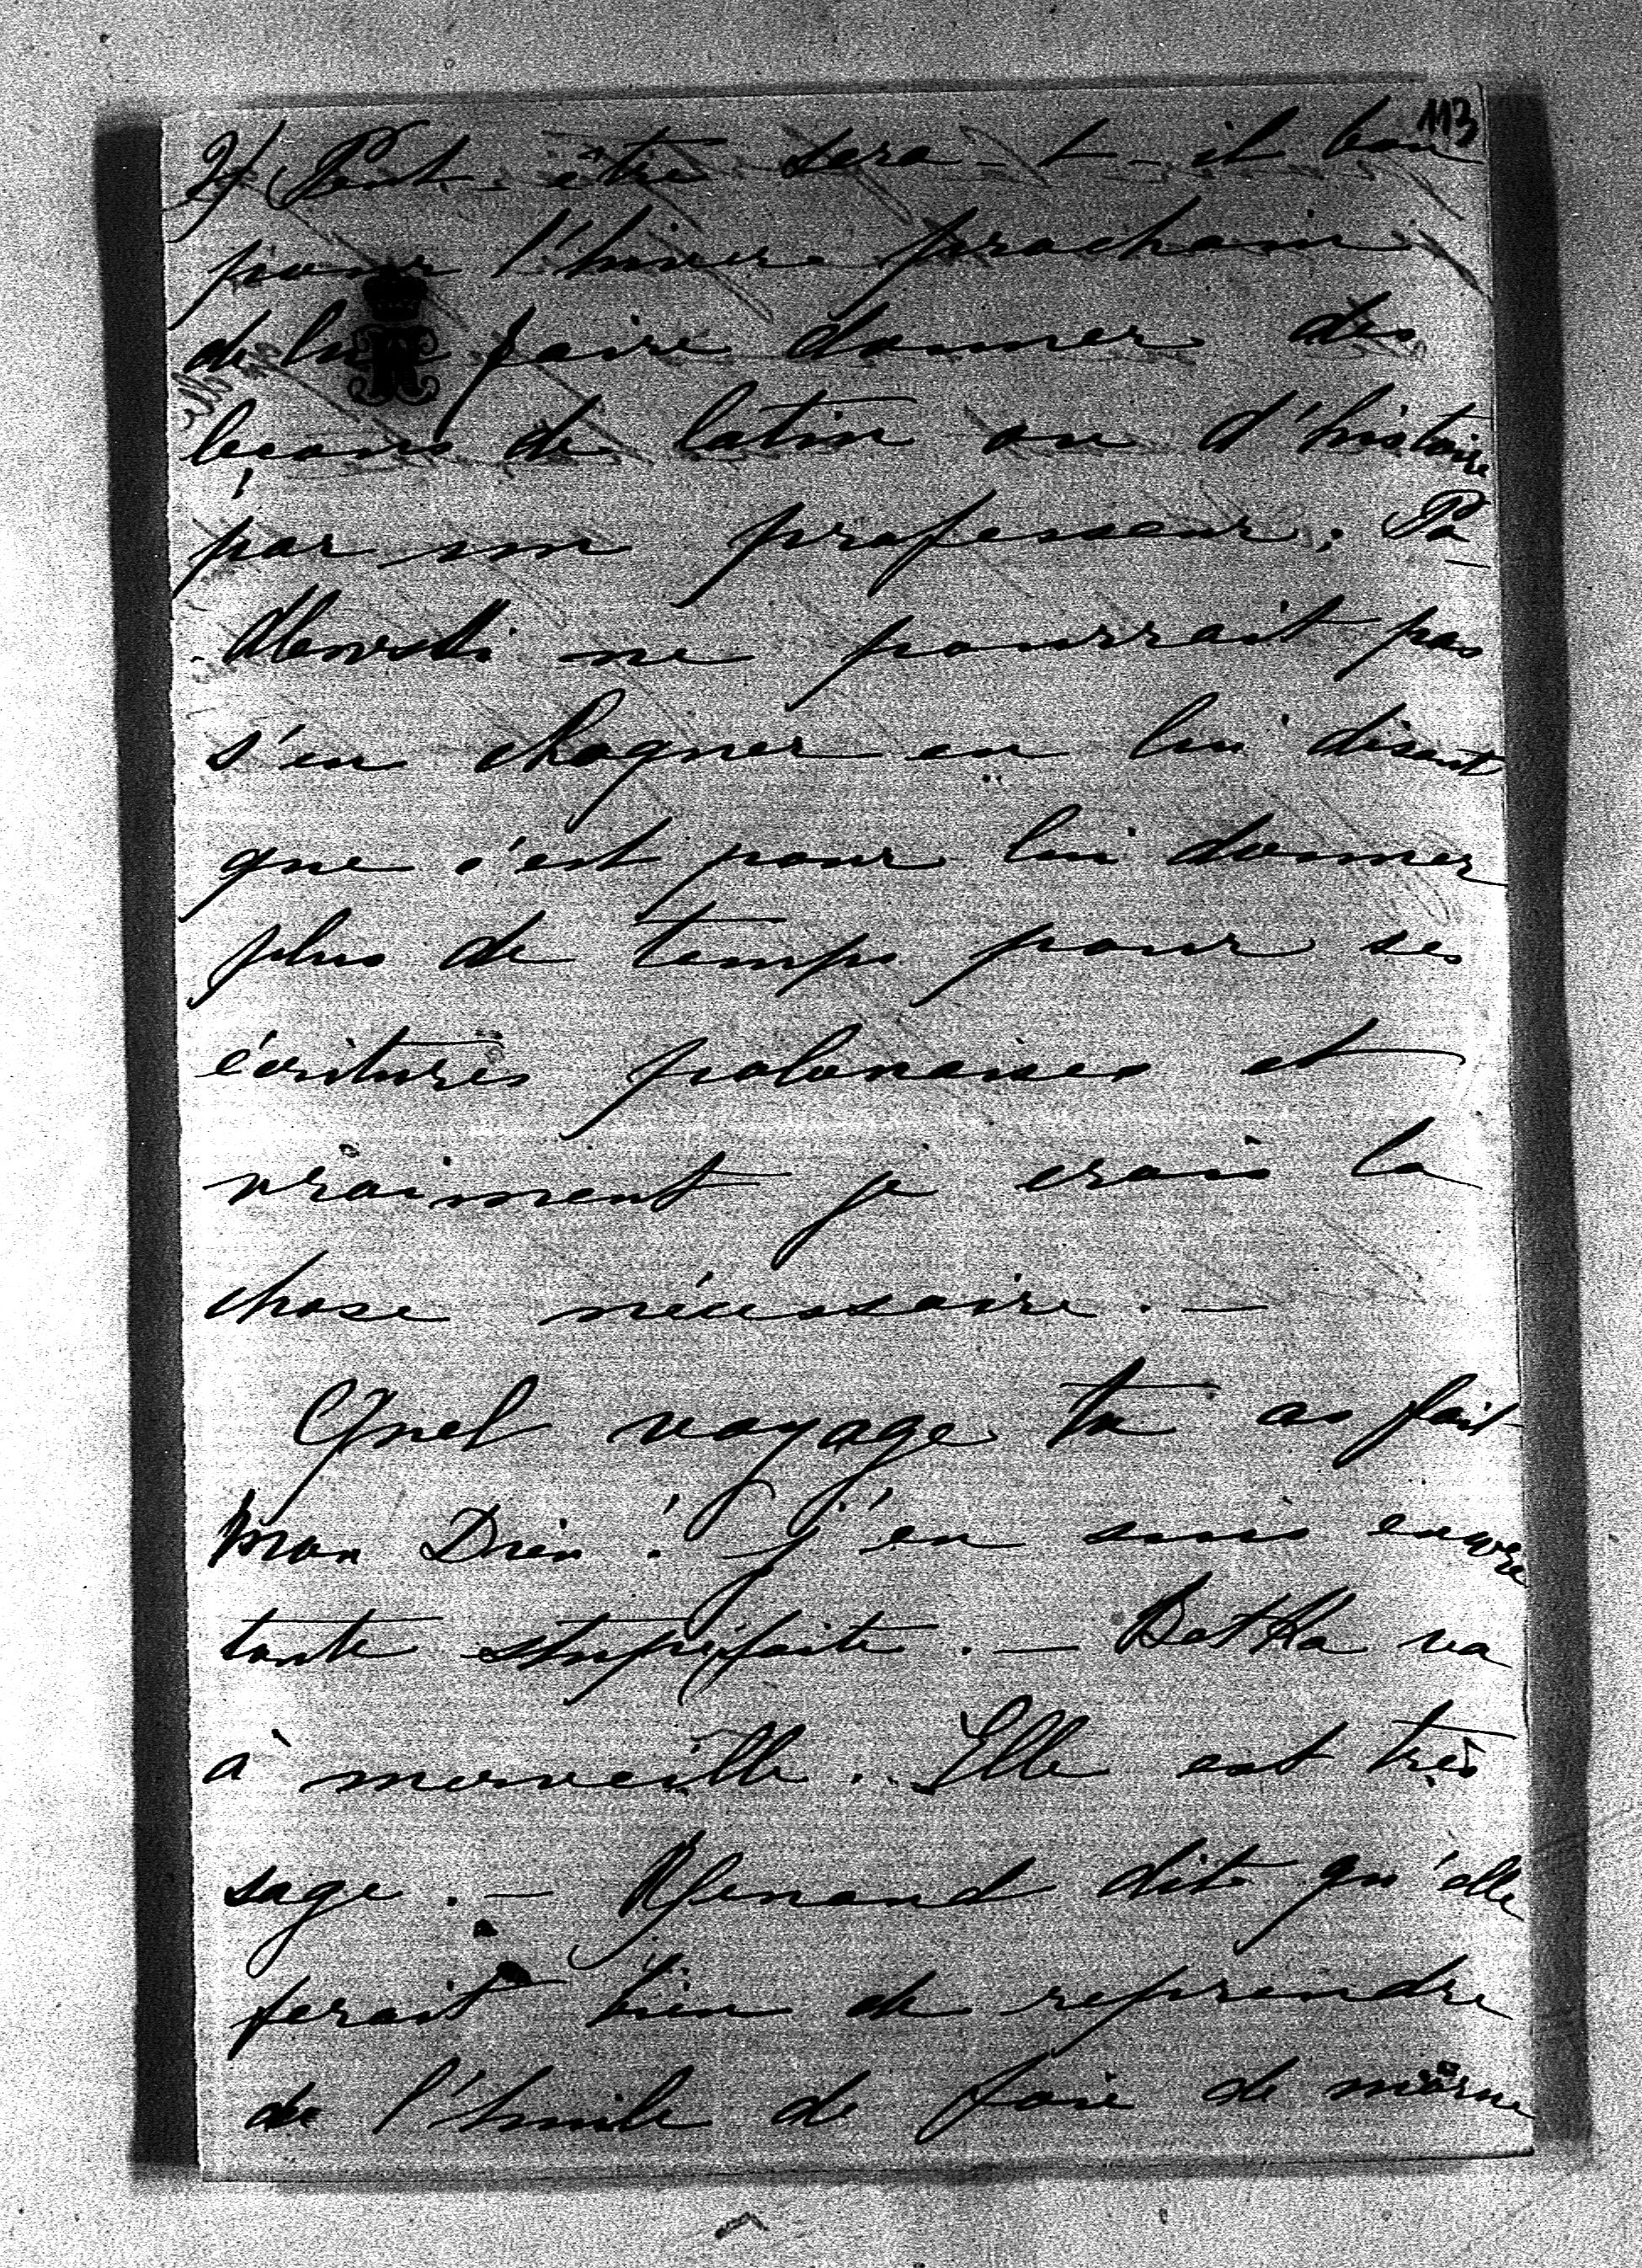 113
2) Peut-être sera-t-il bon
pour l'hiver prochain
de lui faire donner des
leçons de latin ou d'histoire
par un professeur; Pa-
s'en chagner en lui disant
que c'est pour lui donner
plus de temps pour ses
écritures polonaises et
vraiment je crois la
chose nécessaire. —
Quel voyage tu as fait
mon Dieu! j'en suis encore
toute stupéfaite. — Botka va
à merveille. Elle est très
sage. — Renand dit qu'elle
ferait bien de reprendre
de l'huile de foie de morue